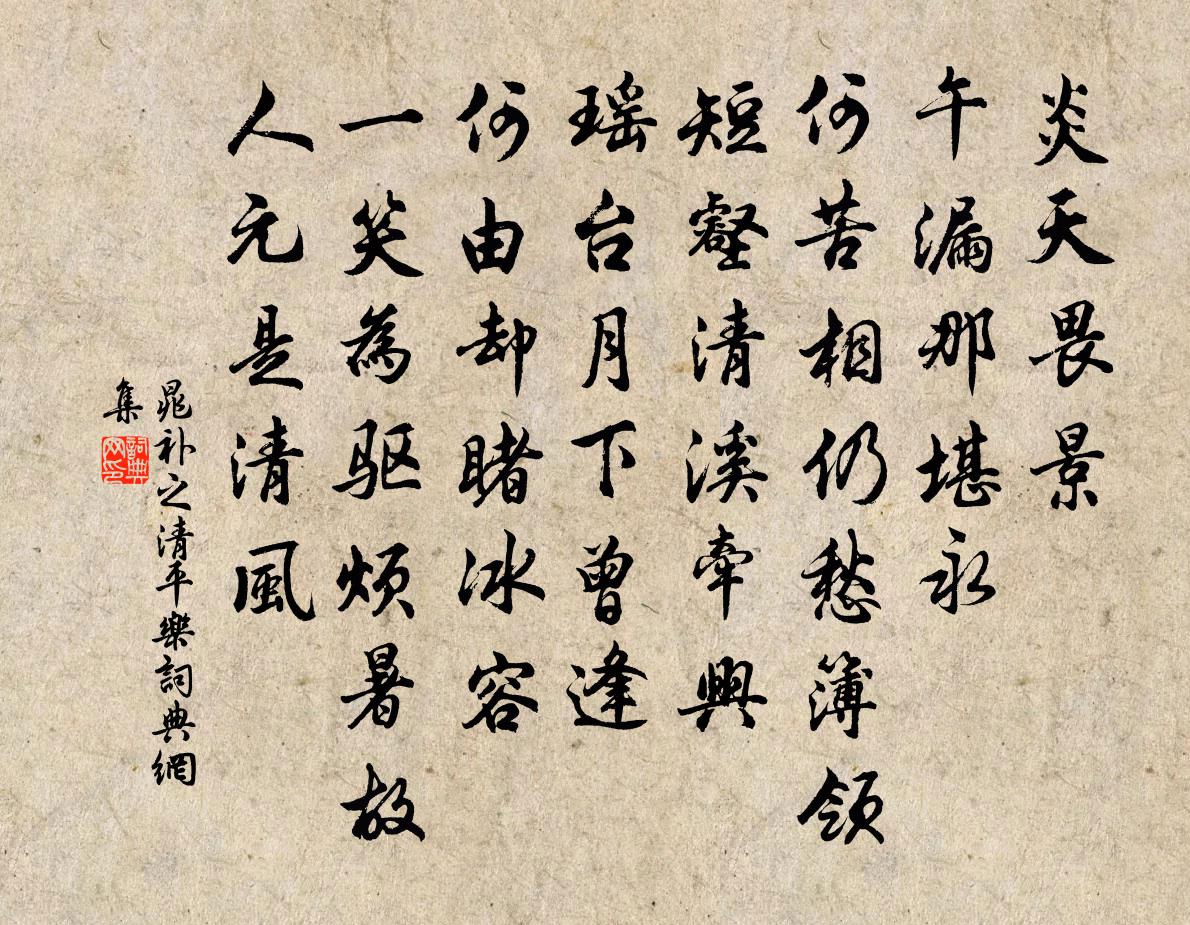 炎天畏景
午漏那堪永
何苦相仍愁簿领
短壑清溪牵興
瑶台月下曾逢
何由却睹冰容
一笑為驱烦暑故
人元是清風
晁补之清平樂詞典網
集
詞典
网印